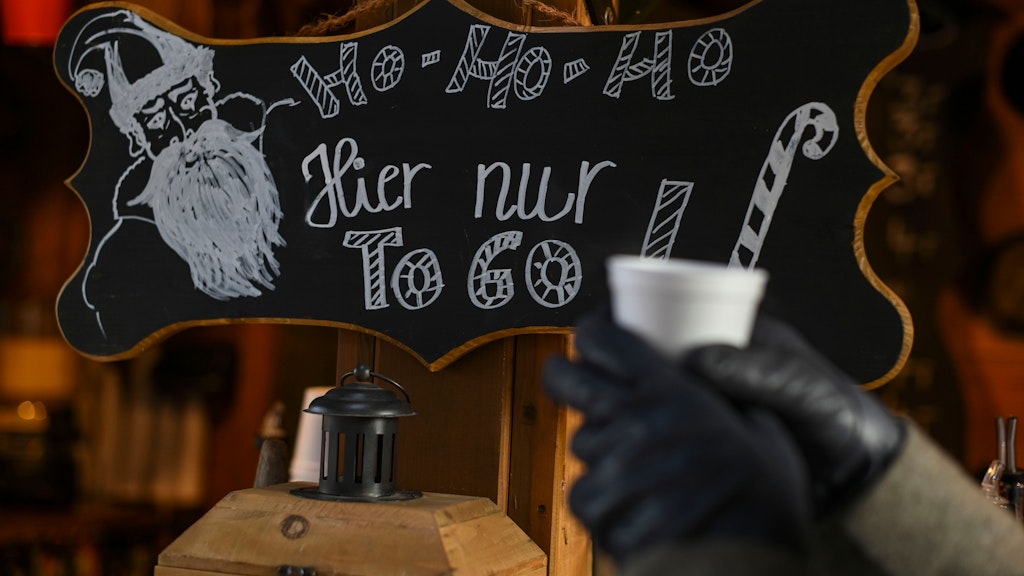 Ho-Ho-Ho
Hier nur
To Go